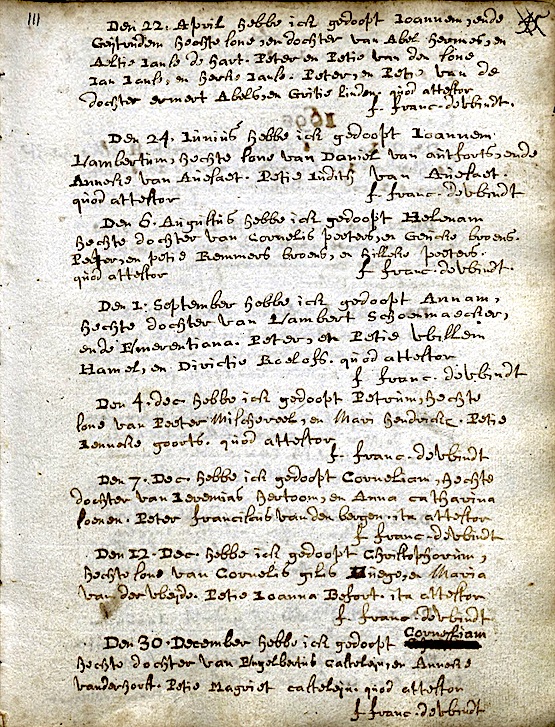 111
Den 22. April hebbe ick gedoopt Ioannem, ende
Geertrudem hechte sone, en dochter van Abel hermes, en
Aeltie Ians de Hart. Peter en Petie van den sone
Ian Ians, en hercke Ians. Peter, en Petie van de
dochter ermert Abels, en Gritie linden. quod attestor
f. Franc. de Windt.
Den 24. Iunius hebbe ick gedoopt Ioannem
Lambertum, hechte sone van Daniel van antforts, ende
Anneke van Auesaet. Petie Iudith van Auesaet.
quod attestor f. franc. de Windt
Den 6. Augustus hebbe ick gedoopt Helenam
hechte dochter van Cornelis peeters, en Geucke broens.
Peeter, en petie Remmers broens, en hilleke peeters.
quod attestor f franc. de Windt.
Den 1. September hebbe ick gedoopt Annam,
hechte dochter van Lambert Schoenmaecker,
ende Emerentiana. Peter, en Petie Willem
Hamel, en Divictie Roelofs. quod attestor
f franc. de Windt
Den 4. dec. hebbe ick gedoopt Petrum, hechte
sone van Peeter Mischereel, en Mari hendricks. Petie
Ienneke goorts. quod attestor
f. franc. de Windt
Den 7. Dec. hebbe ick gedoopt Corneliam, hechte
dochter van Ieremias hertoom, en Anna catharina
loenen. Peter franciscus van den bergen. ita attestor
f franc. de Windt
Den 12. Dec. hebbe ick gedoopt Christophorum,
hechte sone van Cornelis gilis en Maria
van der Weijde. Petie Ioanna Befort. ita attestor
f franc. de Windt
Den 30. December hebbe ick gedoopt Corneliam
hechte dochter van Engelbertus Casteleijn, en Anneke
vanderhorst. Petie Magriet casteleijn. quod attestor
f franc. de Windt